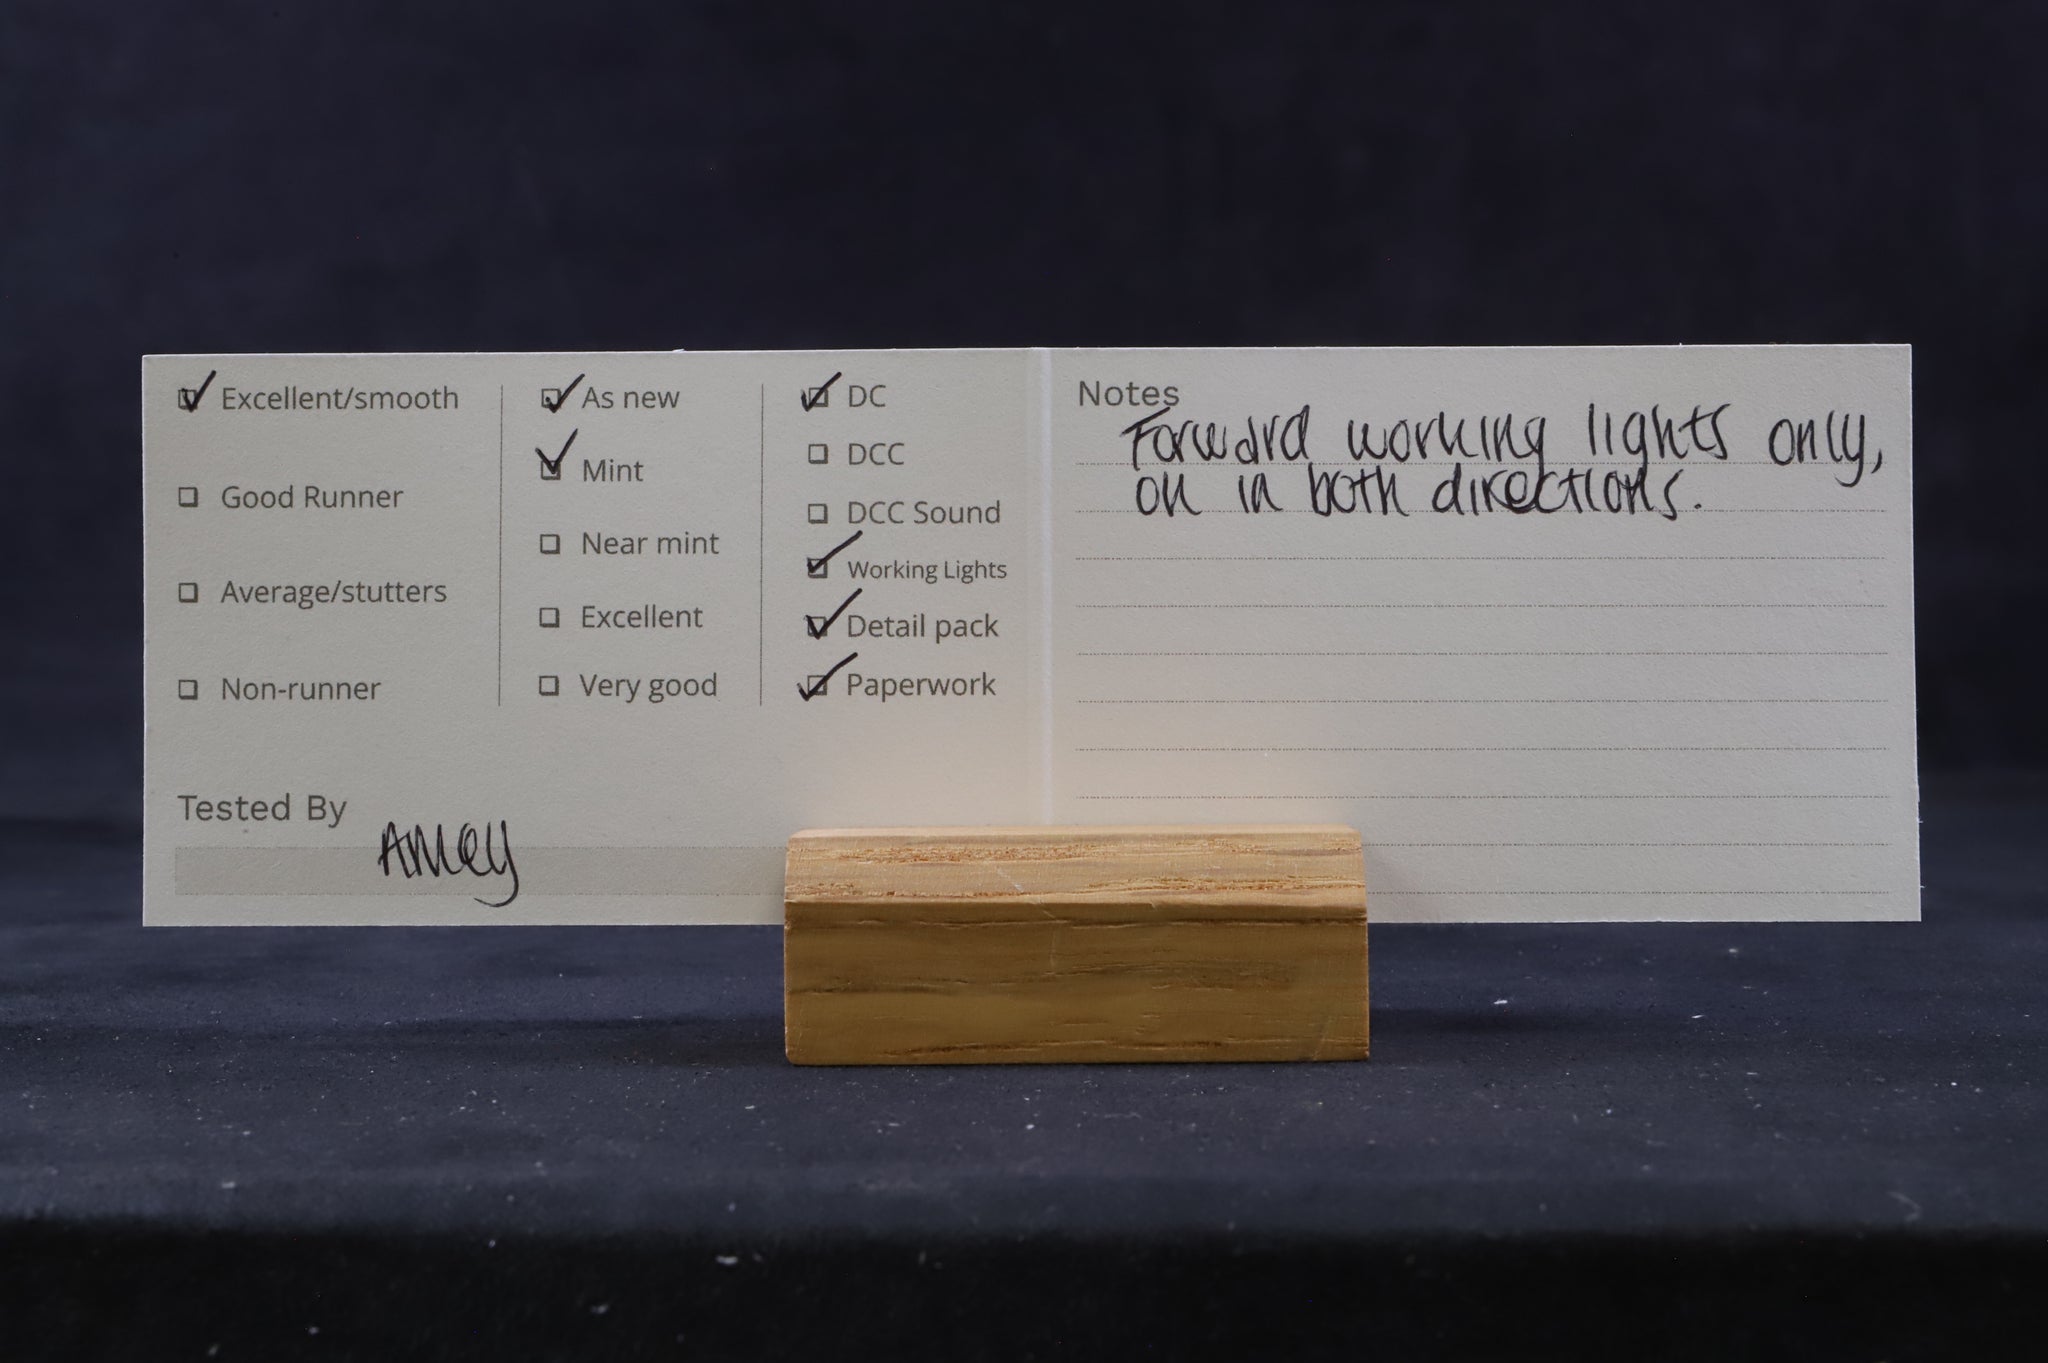 Excellent/smooth
Good Runner
Average/stutters
Non-runner
As new
Mint
Near mint
Excellent
Very good
DC
DCC
DCC Sound
Working Lights
Detail pack
Paperwork
Tested By
Amey
Notes
Forward working lights only,
on in both directions.